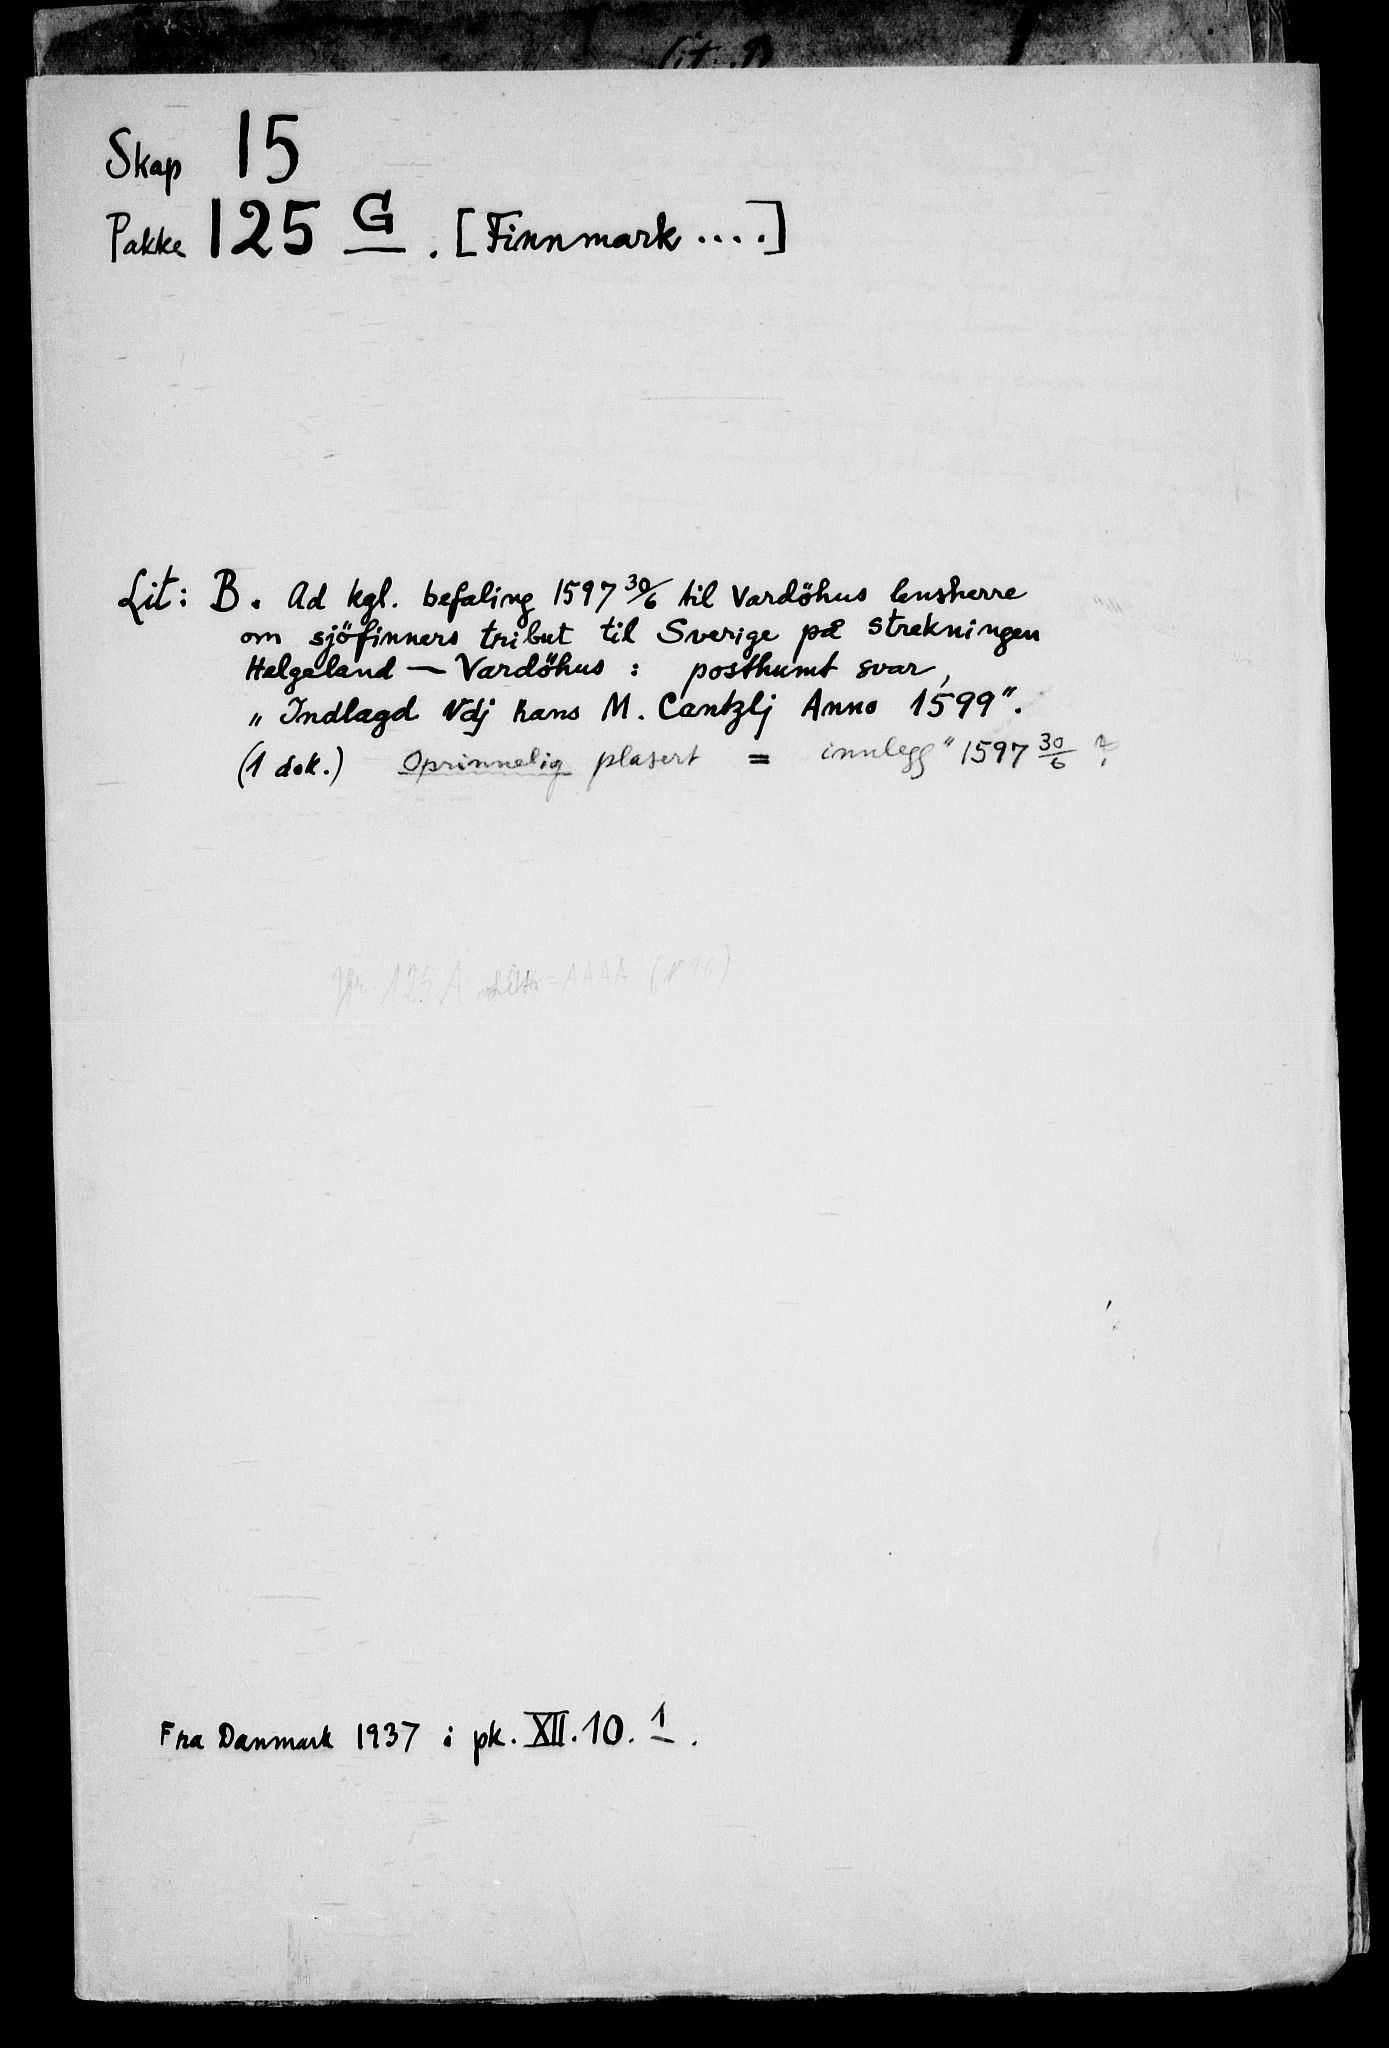 Lit. B
Skap 15
Pakke 125 G. [Finnmark ....]
Lit: B. Ad kgl. befaling 1597 30/6 til Vardöhus lensherre
om sjöfinners tribut til Sverige på strekningen
Helgeland — Vardöhus : posthumt svar,
„Indlagd Vdj hans M. Cantzlj Anno 1599".
(1 dok.) Oprinnelig plasert = innlegg" 1597 30/6 ?
Jfr. 125 A AAAA
Fra Danmark 1937 i pk. XII. 10. 1.